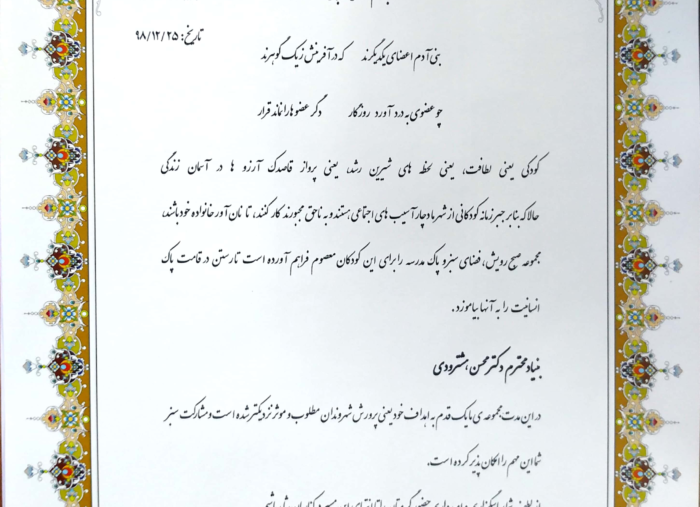 تاریخ: ۹۸/۱۲/۲۵
بنی آدم اعضای یکدیگرند که در آفرینش ز یک گوهرند
چو عضوی به درد آورد روزگار دگر عضوها را نماند قرار
کودکی یعنی لطافت، یعنی لحظه های شیرین رشد، یعنی پرواز قاصدک آرزو ها در آسمان زندگی
حالا که بنابر جبر زمانه کودکانی از شهر ما دچار آسیب های اجتماعی هستند و به ناحق مجبورند کار کنند، تا نان آور خانواده خود باشند،
مجموعه صبح رویش، فضای سبز و پاک مدرسه را برای این کودکان معصوم فراهم آورده است تا رستن در قامت پاک
انسانیت را به آنها بیاموزد.
بنیاد محترم دکتر محسن هشترودی
در این مدت مجموعه ی ما یک قدم به اهداف خود یعنی پرورش شهروندان مطلوب و موثر نزدیکتر شده است و مشارکت سبز
شما این مهم را امکان پذیر کرده است.